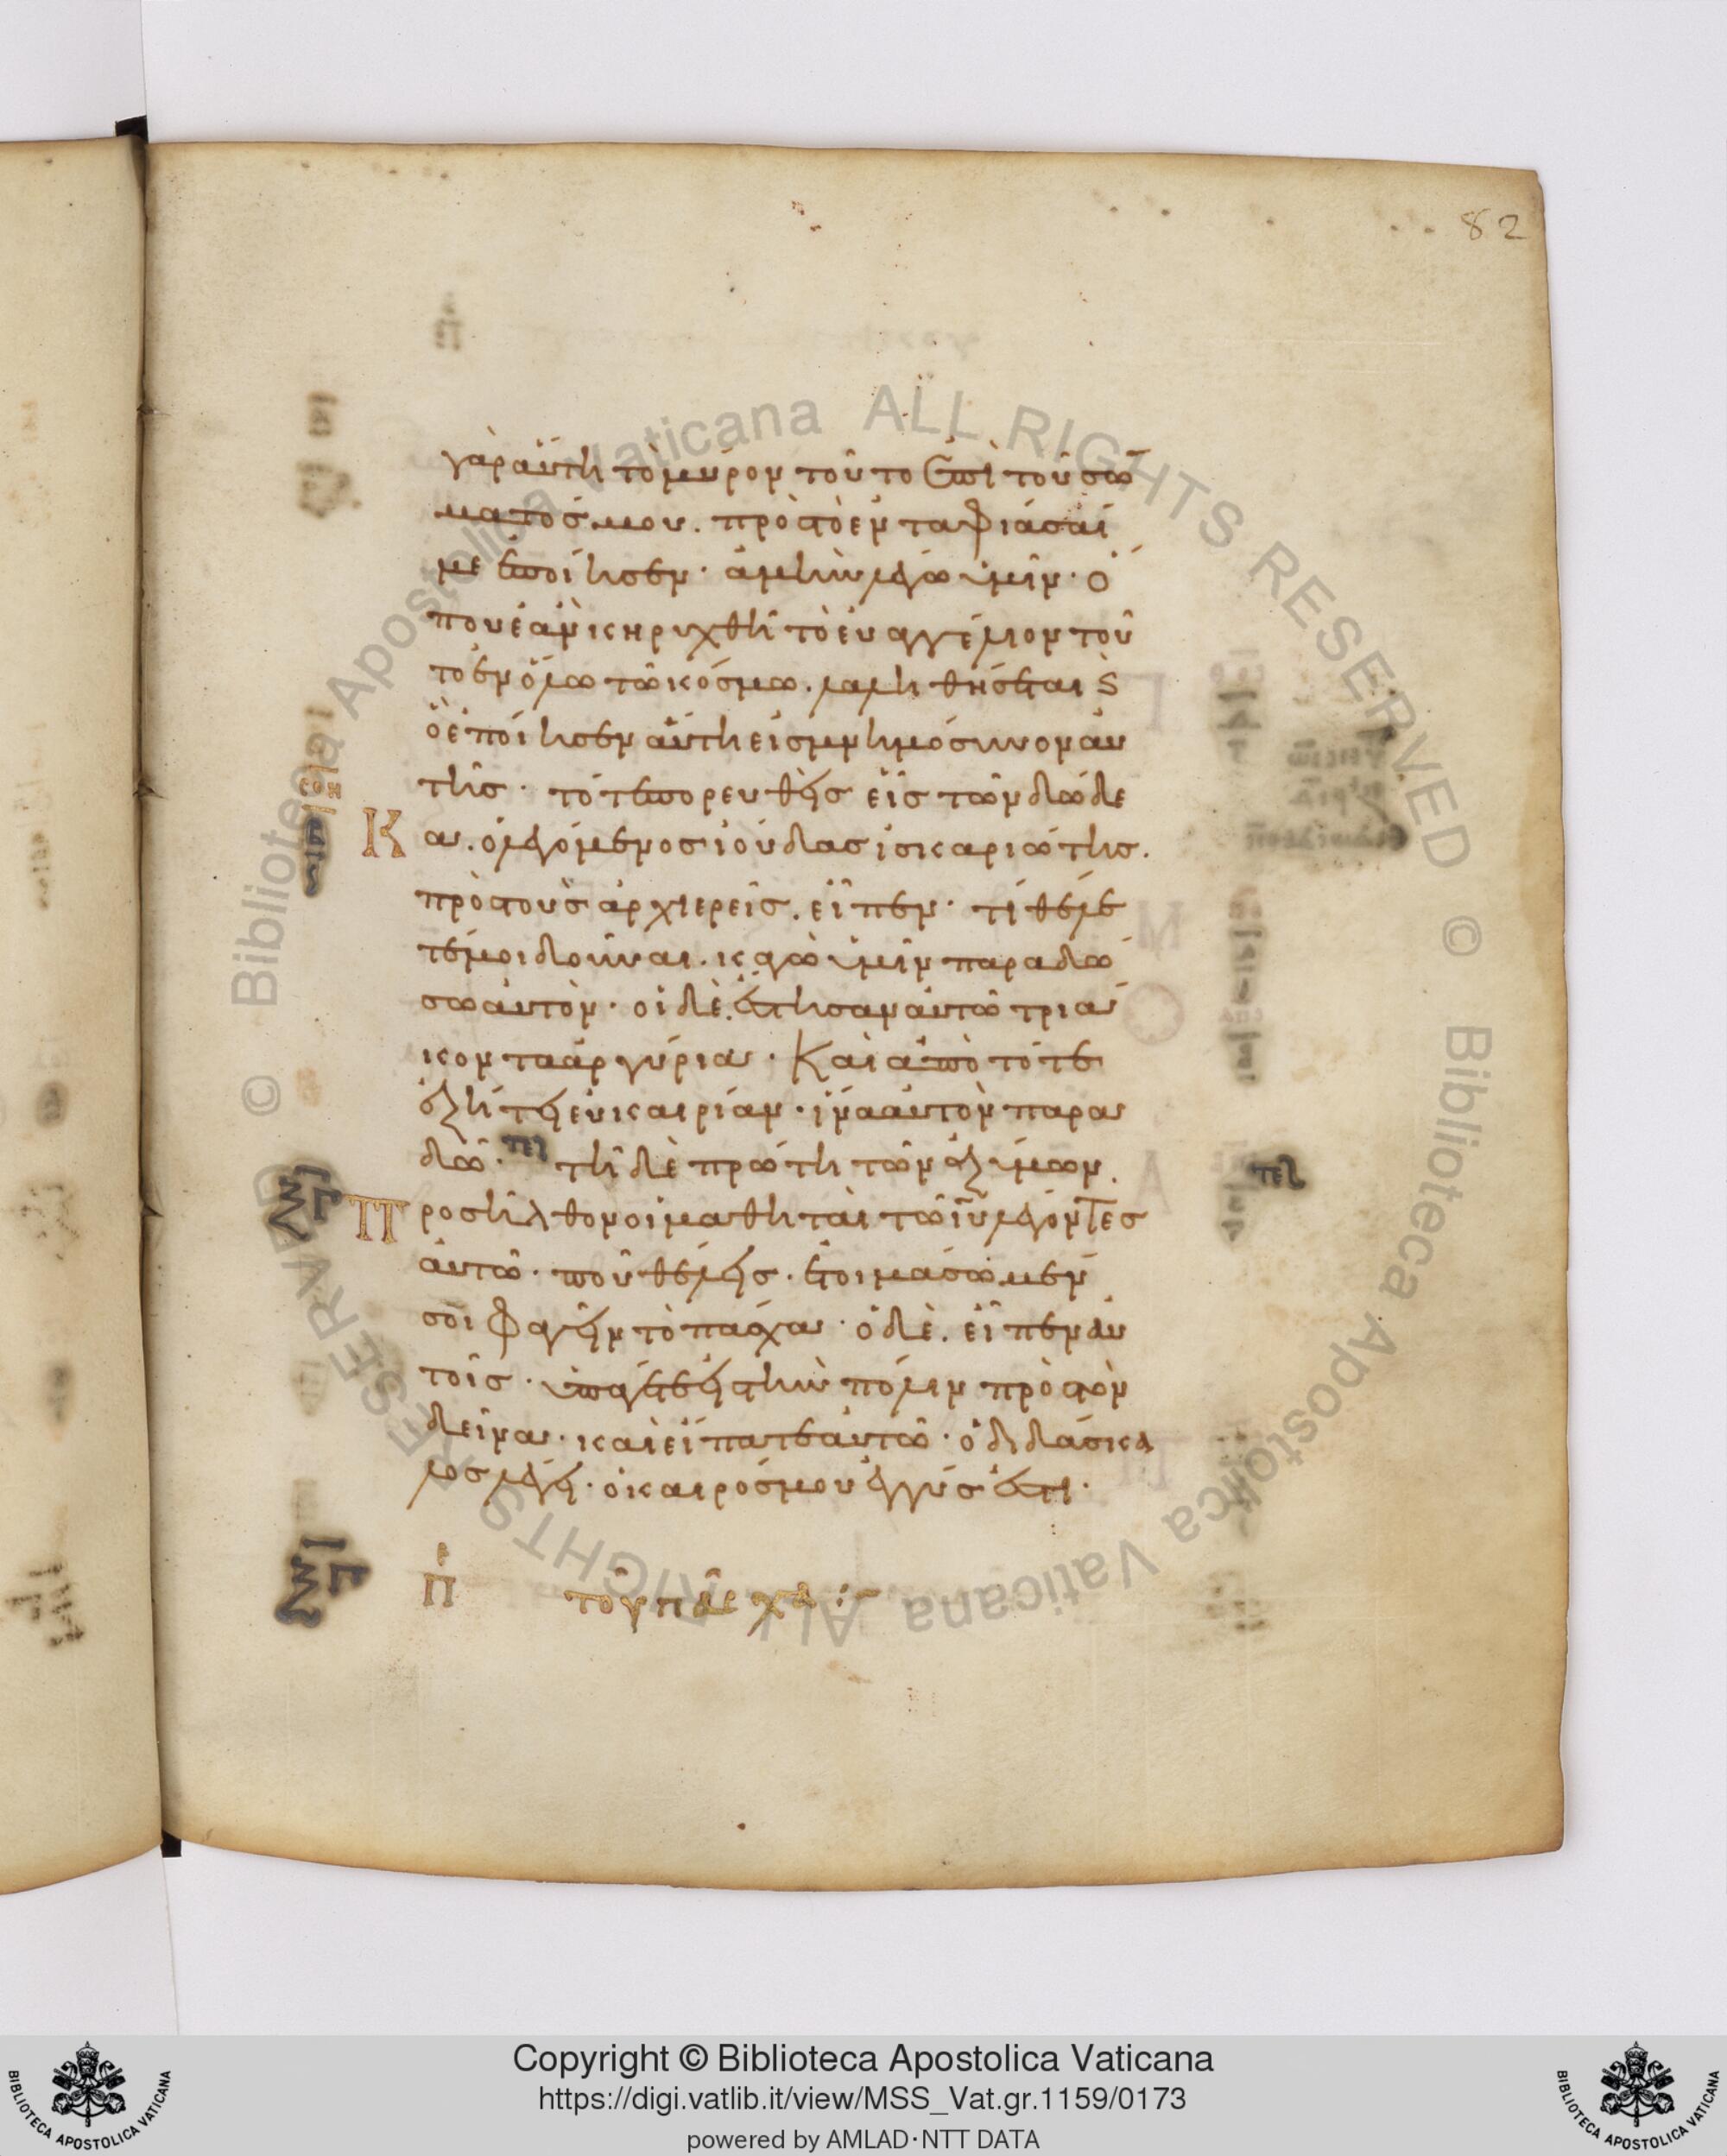 82
γὰρ αὕτη τὸ μύρον τοῦτο ἐπὶ τοῦ σώ
ματός μου. πρὸς τὸ ἐνταφιάσαί
με ἐποίησεν· ἀμὴν λέγω ὑμῖν· ὅ
που ἐὰν κηρυχθῆ τὸ εὐαγγέλιον τοῦ
το ἐν ὅλω τῶ κόσμω. λαληθήσεται ϛ
ὃ ἐποίησεν αὕτη εἰς μνημόσυνον αυ
τῆς· τότε πορευθεὶς εἷς τῶν δώδε
Κ α. ὁ λεγόμενος ἰούδας ἰσκαριώτης.
πρὸς τοὺς ἀρχιερεῖς. εἶπεν· τί θέλε
τέ μοι δοῦναι. κἀγὼ ὑμῖν παραδώ
σω αὐτὸν· οἱ δὲ. ἔστησαν αὐτῶ τριά
κοντα ἀργύρια· Καὶ ἀπὸ τότε
ἐζήτει εὐκαιρίαν· ἵνα αὐτὸν παρα
δῶ· τελ τῆ δὲ πρώτη τῶν ἀζύμων.
Προσῆλθον οἱ μαθηταὶ τῶ ιυ λέγοντες
αὐτῶ· ποῦ θέλεις· ἑτοιμάσωμέν
σοι φαγεῖν τὸ πάσχα· ὁ δὲ. εἶπεν αὐ
τοῖς· ὑπάγετε εἰς τὴν πόλιν πρὸς τὸν
δεῖνα· καὶ εἴπατε αὐτῶ· ὁ διδάσκα
λος λέγει· ὁ καιρός μου ἐγγύς ἐστι·
π τοῦ πάσχα
τελ
Copyright © Biblioteca Apostolica Vaticana
https://digi.vatlib.it/view/MSS_Vat.gr.1159/0173
powered by AMLAD·NTT DATA
BIBLIOTECA APOSTOLICA VATICANA
BIBLIOTECA APOSTOLICA VATICANA
© Biblioteca Apostolica Vaticana ALL RIGHTS RESERVED © Biblioteca Apostolica Vaticana ALL RIGHTS RESERVED